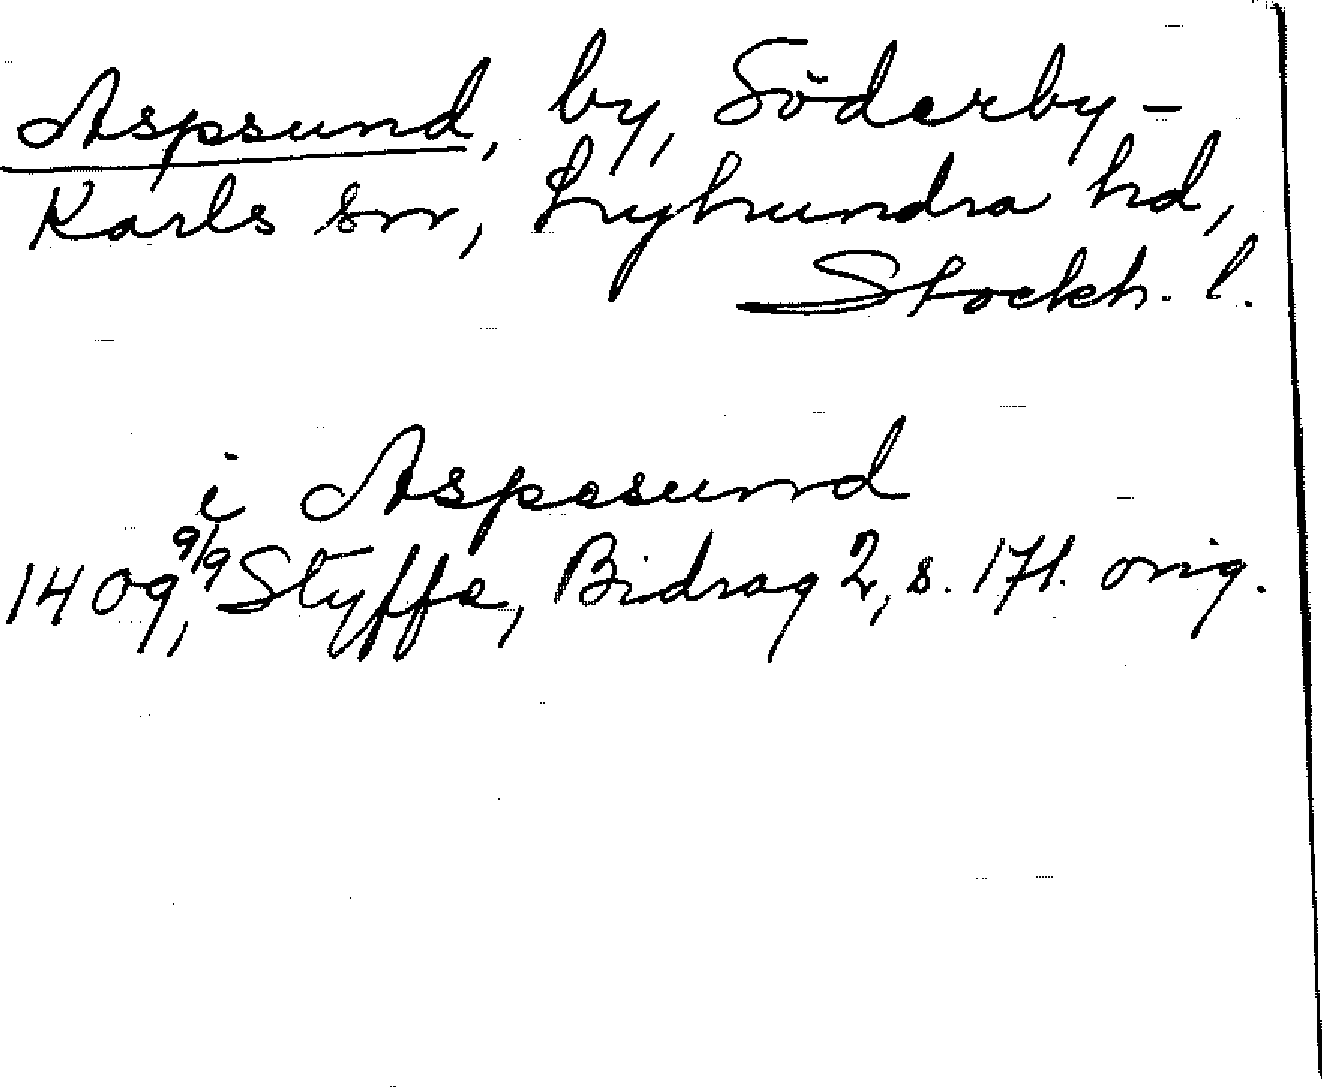 Aspsund, by, Söderby-
Karls sn, Lyhundra hd,
Stockh. l.
i Aspasund
1409 9/9, Styffe, Bidrag 2, s. 171. orig.